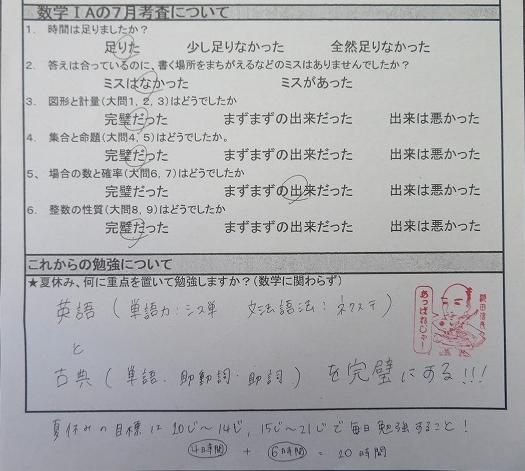 数学ⅠAの7月考査について
1. 時間は足りましたか?
足りた 少し足りなかった 全然足りなかった
2. 答えは合っているのに、書く場所をまちがえるなどのミスはありませんでしたか?
ミスはなかった ミスがあった
3. 図形と計量(大問1, 2, 3)はどうでしたか
完璧だった まずまずの出来だった 出来は悪かった
4. 集合と命題(大問4, 5)はどうでしたか。
完璧だった まずまずの出来だった 出来は悪かった
5、 場合の数と確率(大問6, 7)はどうでしたか
完璧だった まずまずの出来だった 出来は悪かった
6. 整数の性質(大問8, 9)はどうでしたか
完璧だった まずまずの出来だった 出来は悪かった
これからの勉強について
★夏休み、何に重点を置いて勉強しますか?(数学に関わらず)
英語 (単語力:シス単 文法語法:ネクステ)
と
古典 (単語・助動詞・助詞) を完璧にする!!!
あっぱれじゃー
織田信長
夏休みの目標は10じ~14じ, 15じ~21じで毎日勉強すること!
4時間 + 6時間 = 10時間